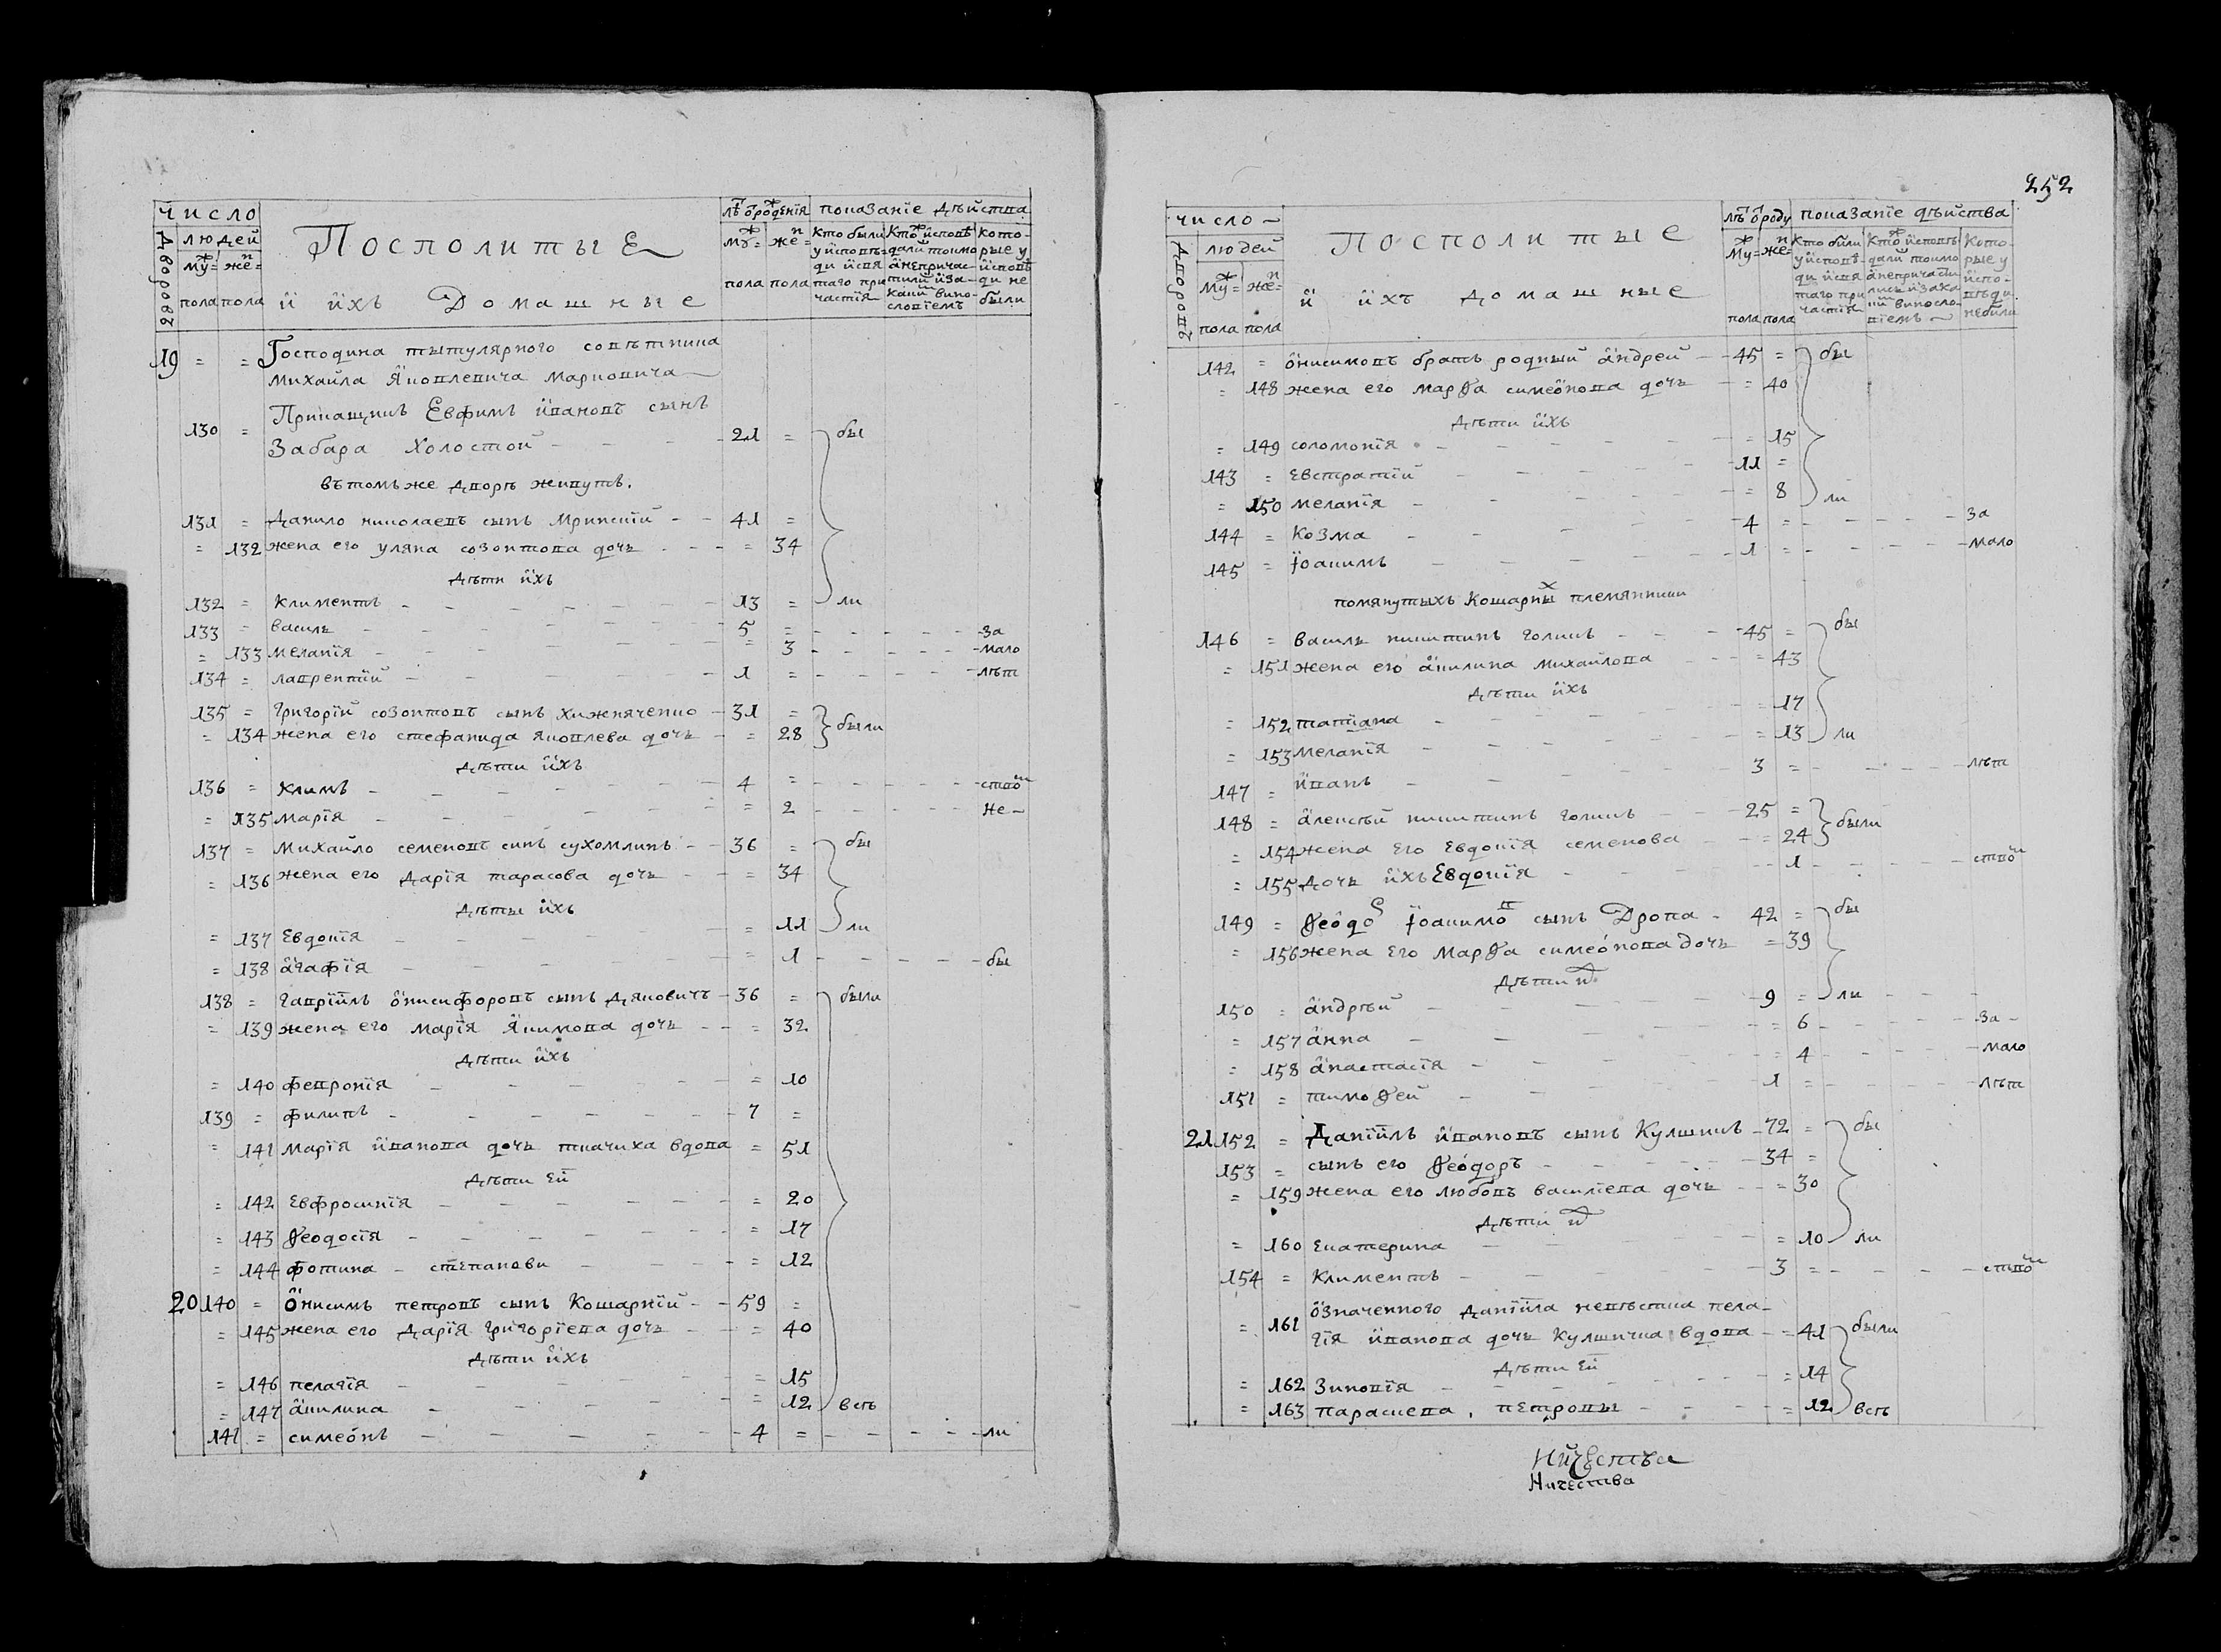 252
число
дворовъ
людей
муж= жен=
пола пола
Посполитые
й йхъ Домашные
лѣт от рожденїя
муж= жен=
пола пола
показанїе дѣйства
кто были у йсповѣди йсвятаго причастїя
кто йсповѣдали токмо анепричастили йзакаки виносло­вїемъ
которые у йсповѣди не были
19 = = Господина тытулярного совѣтника
Михайла Яковлевича Марковича
Прикащикъ Евфимъ йвановъ сынъ
130 = Забара Холостой - - 21 = бы
втомъже дворѣ живутъ.
131 = Данило николаевъ сынъ Мринскїй - - 41 =
= 132 жена его уляна созонтова дочь - - = 34
дѣти йхъ
132 = климентъ - - 13 = ли
133 = василь - - 5 = - - за
= 133 меланїя - - = 3 - - мало
134 = лаврентїй - - 1 = - - лѣт
135 = григорїй созонтовъ сынъ хижняченко - 31 =
= 134 жена его стефанида яковлева дочь - = 28 были
дѣти йхъ
136 = климъ - - 4 = - - ством
= 135 марїя - - = 2 - - не-
137 = михайло семеновъ синъ сухомлинъ - - 36 = бы
= 136 жена его дарїя тарасова дочь - - = 34
дѣты йхъ
= 137 Евдокїя - - = 11 ли
= 138 агафїя - - = 1 - - бы
138 = гаврїилъ онисифоровъ сынъ дяковичъ - 36 = были
= 139 жена его марїя якимова дочь - - = 32
дѣти йхъ
= 140 февронїя - - = 10
139 = филипъ - - 7 =
= 141 марїя йванова дочь ткачиха вдова = 51
дѣти Ей
= 142 Евфросинїя - - = 20
= 143 Ѳеодосїя - - = 17
= 144 фотина - степанови - - = 12
20 140 = онисимъ петровъ сынъ Кошарнїй - - 59 =
= 145 жена его дарїя григорїева дочь - - = 40
дѣти йхъ
= 146 пелагїя - - = 15
= 147 акилина - - = 12 всѣ
141 = симеонъ - - 4 = - - ли
число
дворовъ
людей
муж= жен=
пола пола
Посполитые
й йхъ домашные
лѣт от роду
муж= жен=
пола пола
показанїе дѣйства
кто били у йсповѣди йсвятаго причастїя
кто йсповѣдали токмо анепричастились йзакакимъ винословїемъ
которые у йсповѣди небили
142 = онисимовъ братъ родный андрей - - 45 = бы
= 148 жена его марѳа симеонова дочь - = 40
дѣти йхъ
= 149 соломонїя - - = 15
143 = Евстратїй - - 11 =
= 150 меланїя - - = 8 ли
144 = Козма - - 4 = - - за
145 = їоакимъ - - 1 = - - мало
помянутыхъ Кошарных племянники
146 = василь никитинъ голикъ - - 45 = бы
= 151 жена его акилина михайлова - - = 43
дѣти йхъ
= 152 татїана - - = 17
= 153 меланїя - - = 13 ли
147 = йванъ - - 3 = - - лѣт
148 = алексѣй никитинъ голикъ - - 25 =
= 154 жена Его Евдокїя семенова - - = 24 были
= 155 дочь йхъ Евдокїя - - 1 - - ством
149 = Ѳеодос їоакимов сынъ Дрова - 42 = бы
= 156 жена Его Марѳа симеонова дочь = 39
дѣти их
150 = андрѣй - - 9 = ли
= 157 анна - - = 6 - - за -
= 158 анастасїя - - = 4 - - мало
151 = тимоѳей - - 1 = - - лѣт
21 152 = Данїилъ йвановъ сынъ Кулшикъ - 72 = бы
153 = сынъ его Ѳеодоръ - - 34 =
= 159 жена его любовъ василїева дочь - - = 30
дѣти их
= 160 Екатерина - - = 10 ли
154 = Климентъ - - 3 = - - ством
означенного данїила невѣстка пела-
= 161 гїя йванова дочь Кулшичка вдова - = 41 были
дѣти Ей
= 162 Зиновїя - - = 14
= 163 параскева. петровы - - = 12 всѣ
Нйчества
Ничества